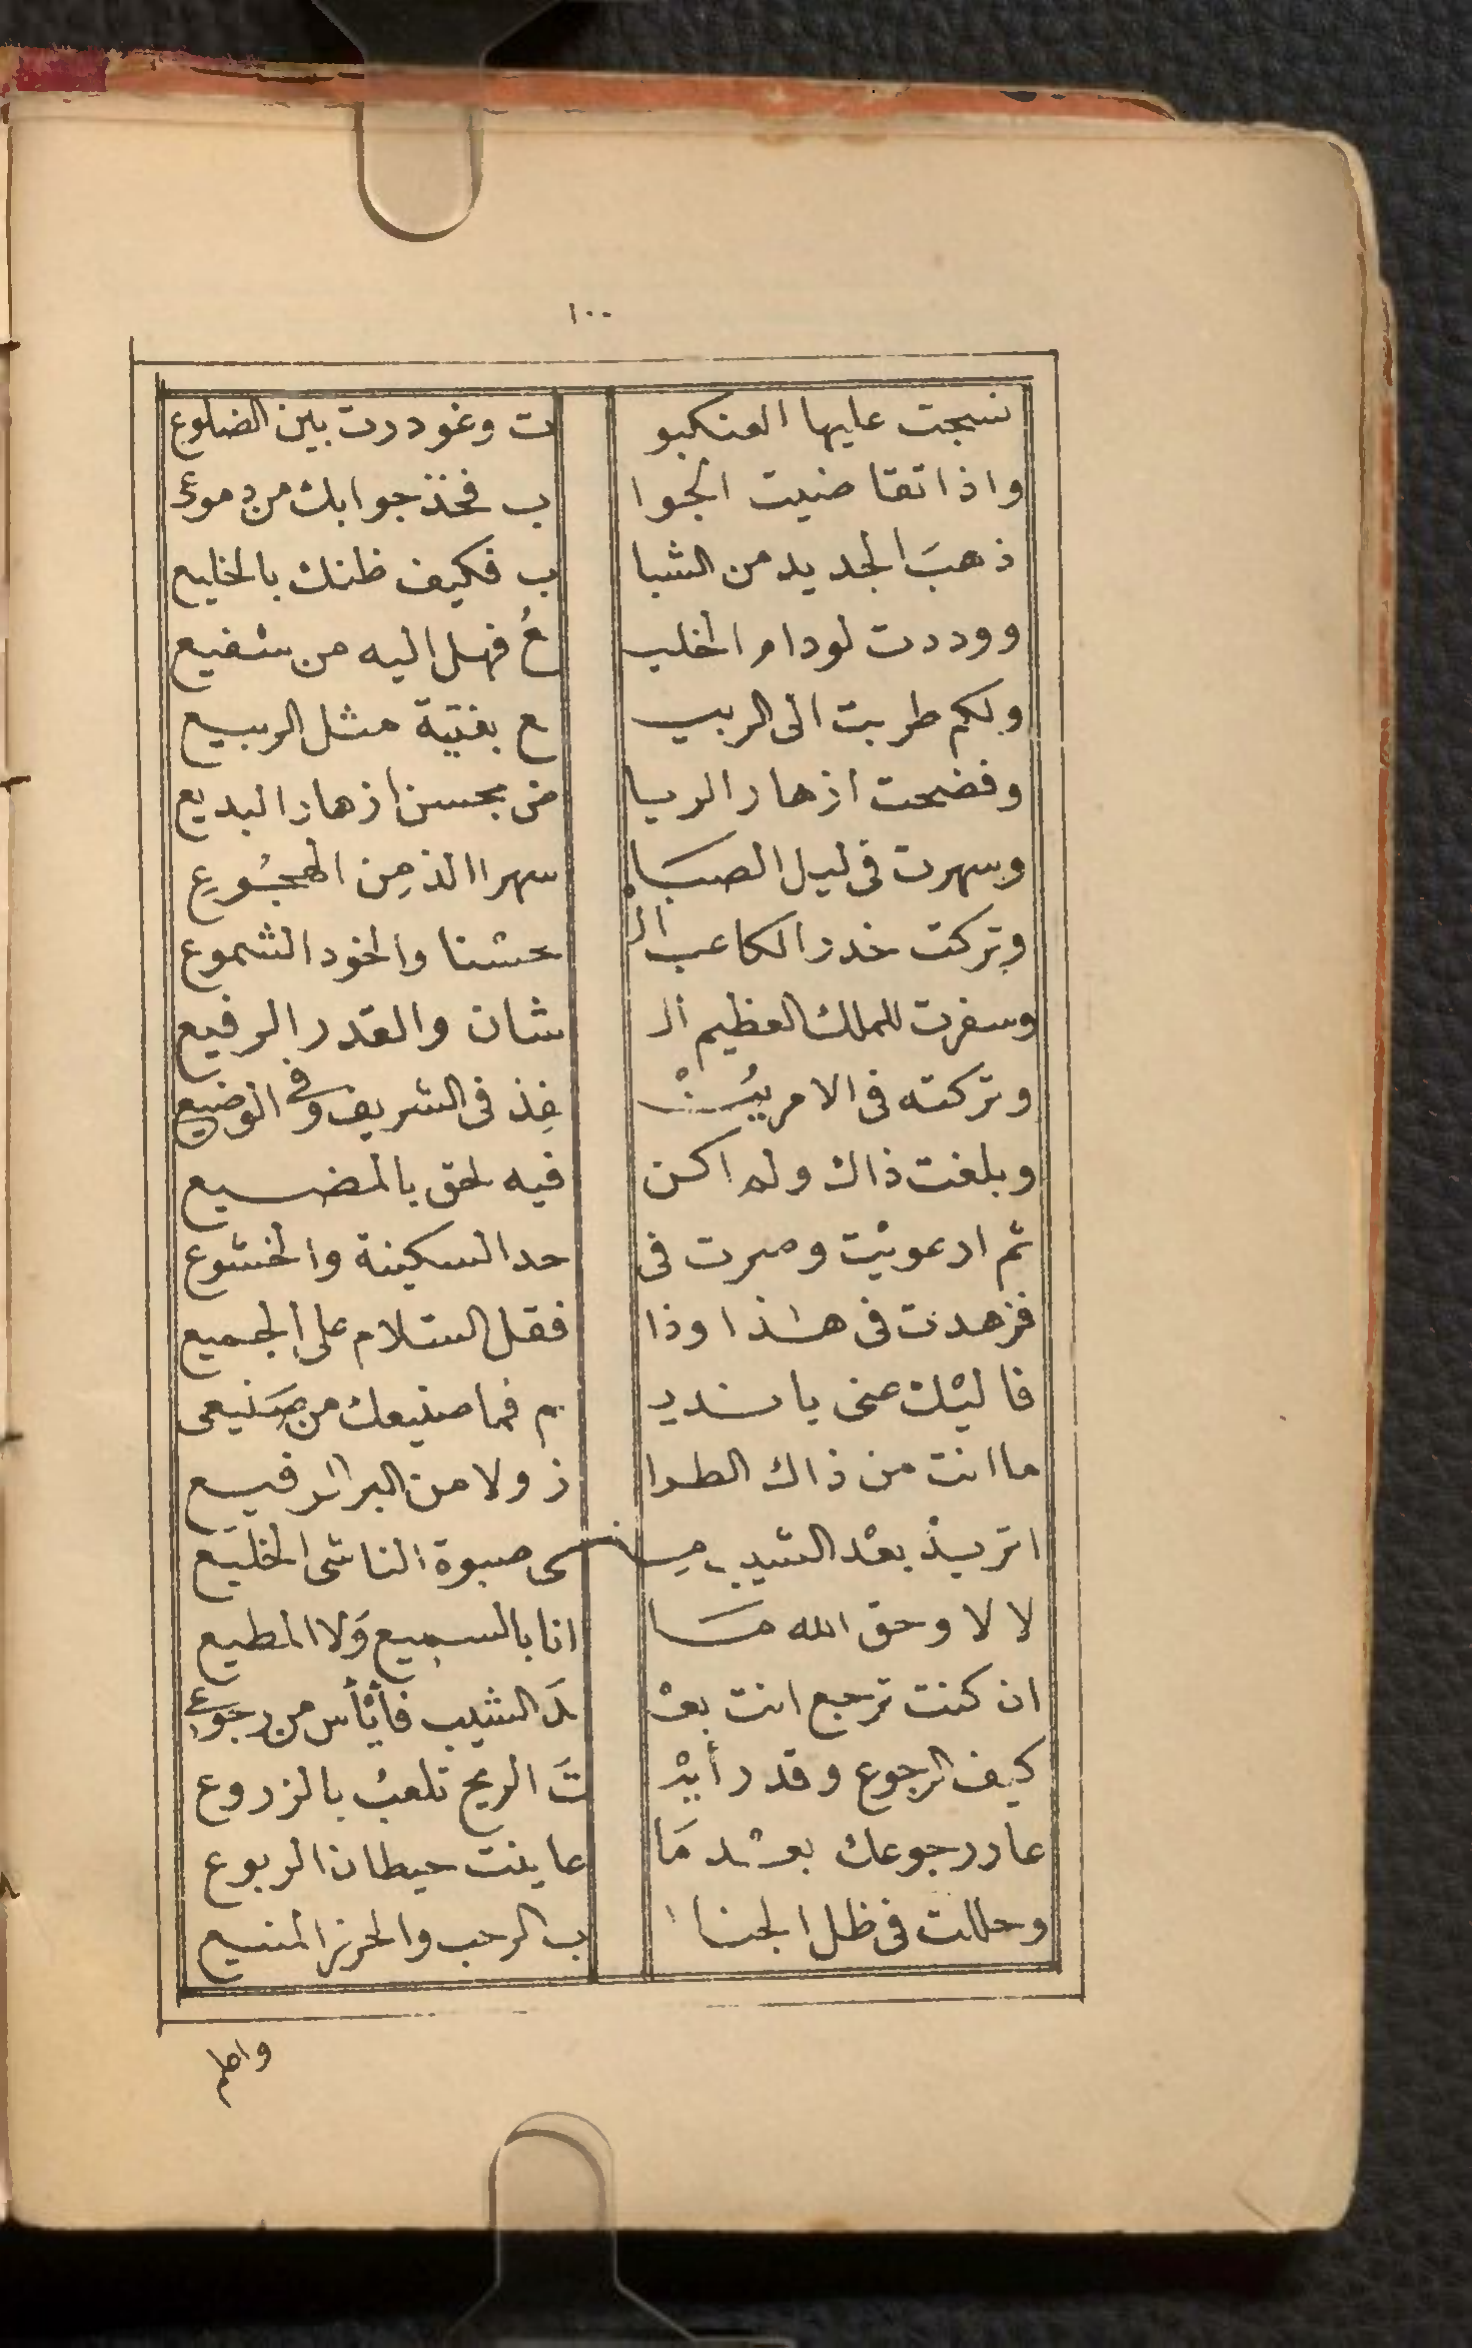 ١٠٠
نسجت عليها العنكبو ت وغودرت بين الضلوع
واذا تقاضيت الجوا ب فخذ جوابك من دموعى
ذهبَ الجديد من الشبا ب فكيف ظنك بالخليع
ووددت لودام الخليـ ـعُ فهل اليه من شفيع
ولكم طربت الى الربيـ ـع بفتية مثل الربيع
وفضحت ازهار الريا ض بحسن ازهار البديع
وسهرت فى ليل الصبَا سهرا الذ مِن الهجُوعِ
وتركت خدر الكاعب الـ حسنا والخود الشموع
وسفرت للملك العظيم الـ شان والقدر الرفيع
وتركته فى الامر ينُـ ـفِذ فى الشريف وفى الوضيع
وبلغت ذاك ولم اكن فيه لحق بالمضيع
ثم ارعويْت وصرت فى حد السكينة والخشوع
فزهدت فى هذا وذا فقل السّلام على الجميع
فاليْك عنى يا نديـ ـم فما صنيعك من صَنيعى
ما انت من ذاك الطرا ز ولا من البز الرفيع
اتريدُ بعْد الشيب منـ ـى صبوة الناشى الخليع
لا لا وحق الله مَا انا بالسميع وَلا المطيع
ان كنت ترجع انت بعْـ ـدَ الشيب فأيْأس من رجوعى
كيف الرجوع وقد رأيْـ ـتَ الريح تلعبُ بالزروع
عار رجوعك بعْد مَا عاينت حيطان الربوع
وحللت فى ظل الجنا ب الرحب والحرز المنيع